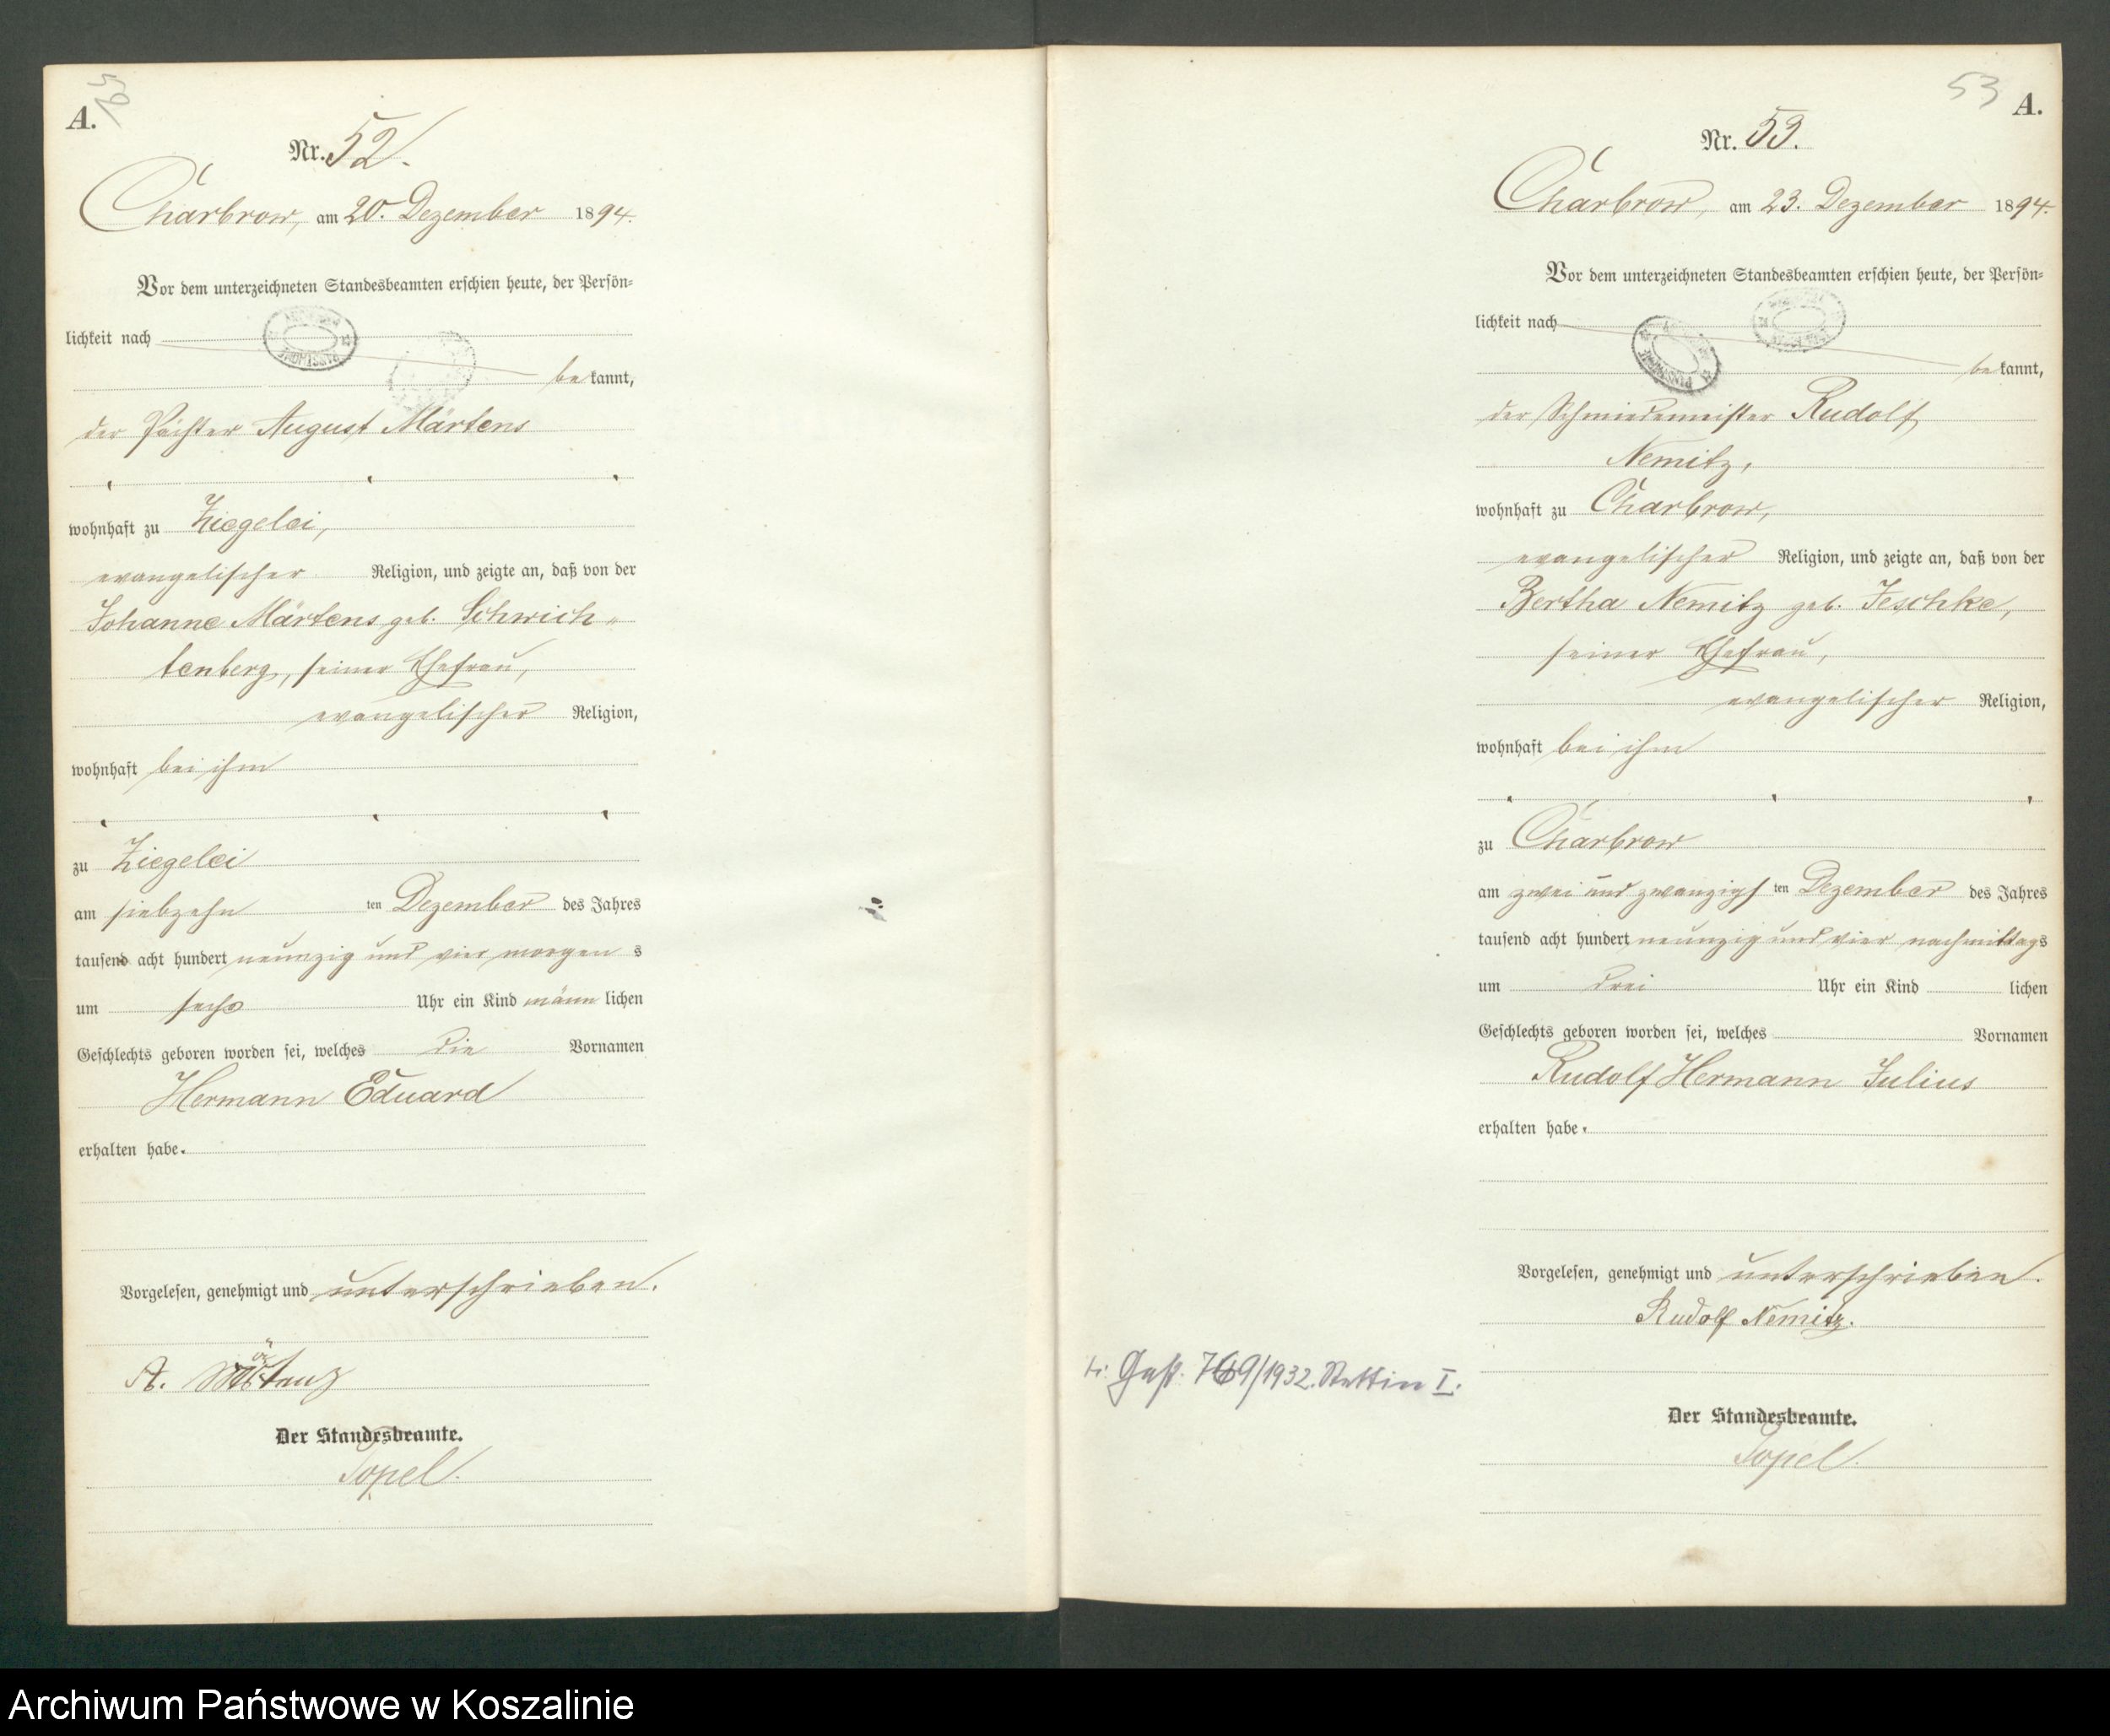 A.
Nr. 52.
Charbrow, am 20. Dezember 1894.
Vor dem unterzeichneten Standesbeamten erschien heute, der Persön-
lichkeit nach
bekannt,
der Pächter August Märtens
wohnhaft zu Ziegelei,
evangelischer Religion, und zeigte an, daß von der
Johanne Märtens geb. Schwich-
tenberg, seiner Ehefrau,
evangelischer Religion,
wohnhaft bei ihm
zu Ziegelei
am siebzehn ten Dezember des Jahres
tausend acht hundert neunzig und vier morgens
um sechs Uhr ein Kind männlichen
Geschlechts geboren worden sei, welches die Vornamen
Hermann Eduard
erhalten habe.
Vorgelesen, genehmigt und unterschrieben.
A.
Der Standesbeamte.
Topel.
53
A.
Nr. 53.
Charbrow, am 23. Dezember 1894.
Vor dem unterzeichneten Standesbeamten erschien heute, der Persön-
lichkeit nach
bekannt,
der Schmiedemeister Rudolf
Nemitz,
wohnhaft zu Charbrow,
evangelischer Religion, und zeigte an, daß von der
Bertha Nemitz geb. Jeschke,
seiner Ehefrau,
evangelischer Religion,
wohnhaft bei ihm
zu Charbrow
am zwei und zwanzigsten Dezember des Jahres
tausend acht hundert neunzig und vier nachmittags
um drei Uhr ein Kind lichen
Geschlechts geboren worden sei, welches Vornamen
Rudolf Hermann Julius
erhalten habe.
Vorgelesen, genehmigt und unterschrieben.
Rudolf Nemitz.
769/1932. Stettin I.
Der Standesbeamte.
Topel.
Archiwum Państwowe w Koszalinie